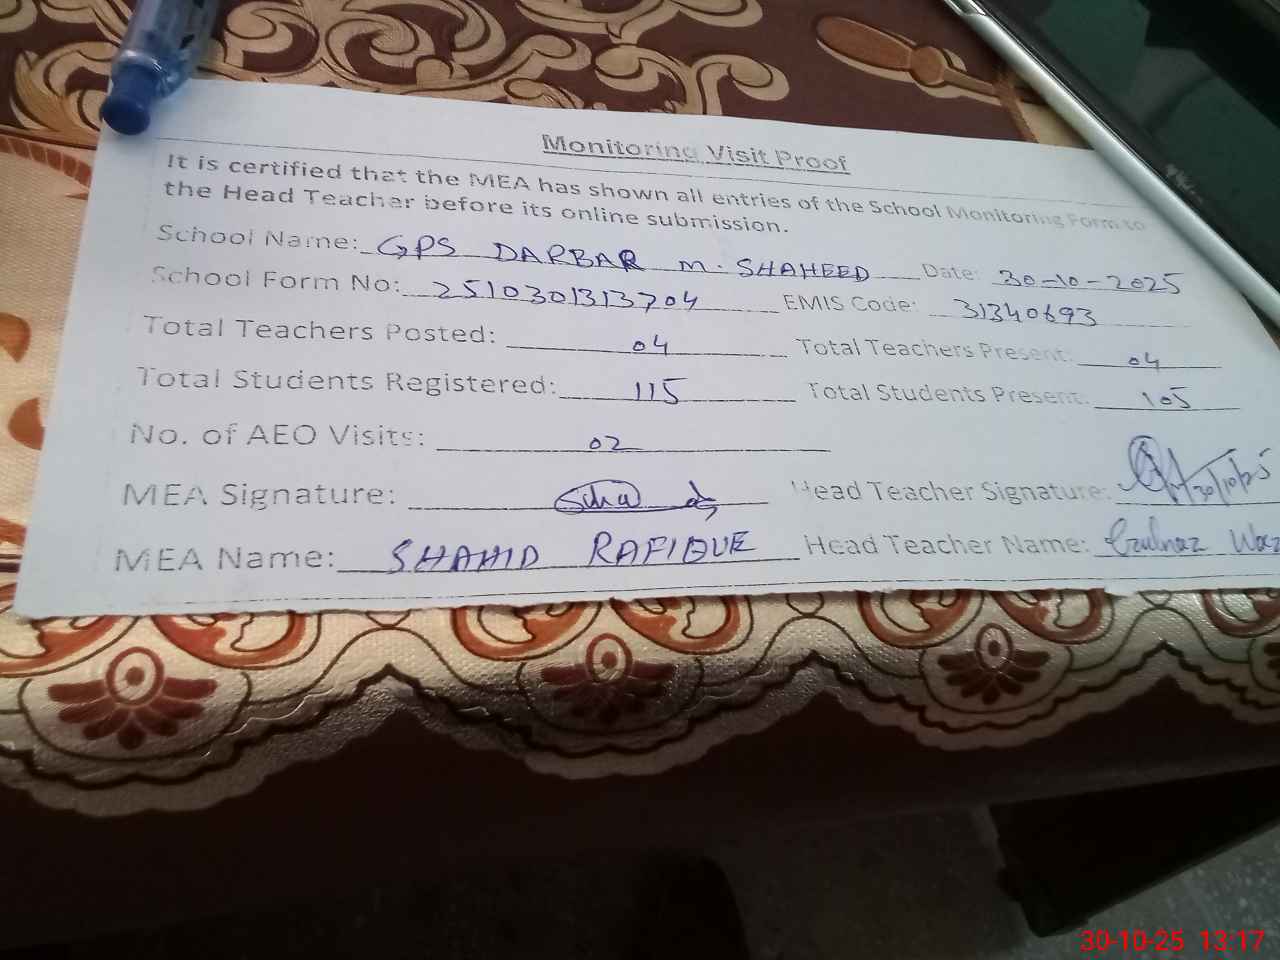 Monitoring Visit Proof
It is certified that the MEA has shown all entries of the School Monitoring Form to
the Head Teacher before its online submission.
School Name: GPS DARBAR M. SHAHEED Date: 30-10-2025
School Form No: 2510301313704 EMIS Code: 31340693
Total Teachers Posted: 04 Total Teachers Present: 04
Total Students Registered: 115 Total Students Present: 105
No. of AEO Visits: 02
MEA Signature: Head Teacher Signature: 30/10/25
MEA Name: SHAHID RAFIQUE Head Teacher Name: Gulnaz
30-10-25 13:17